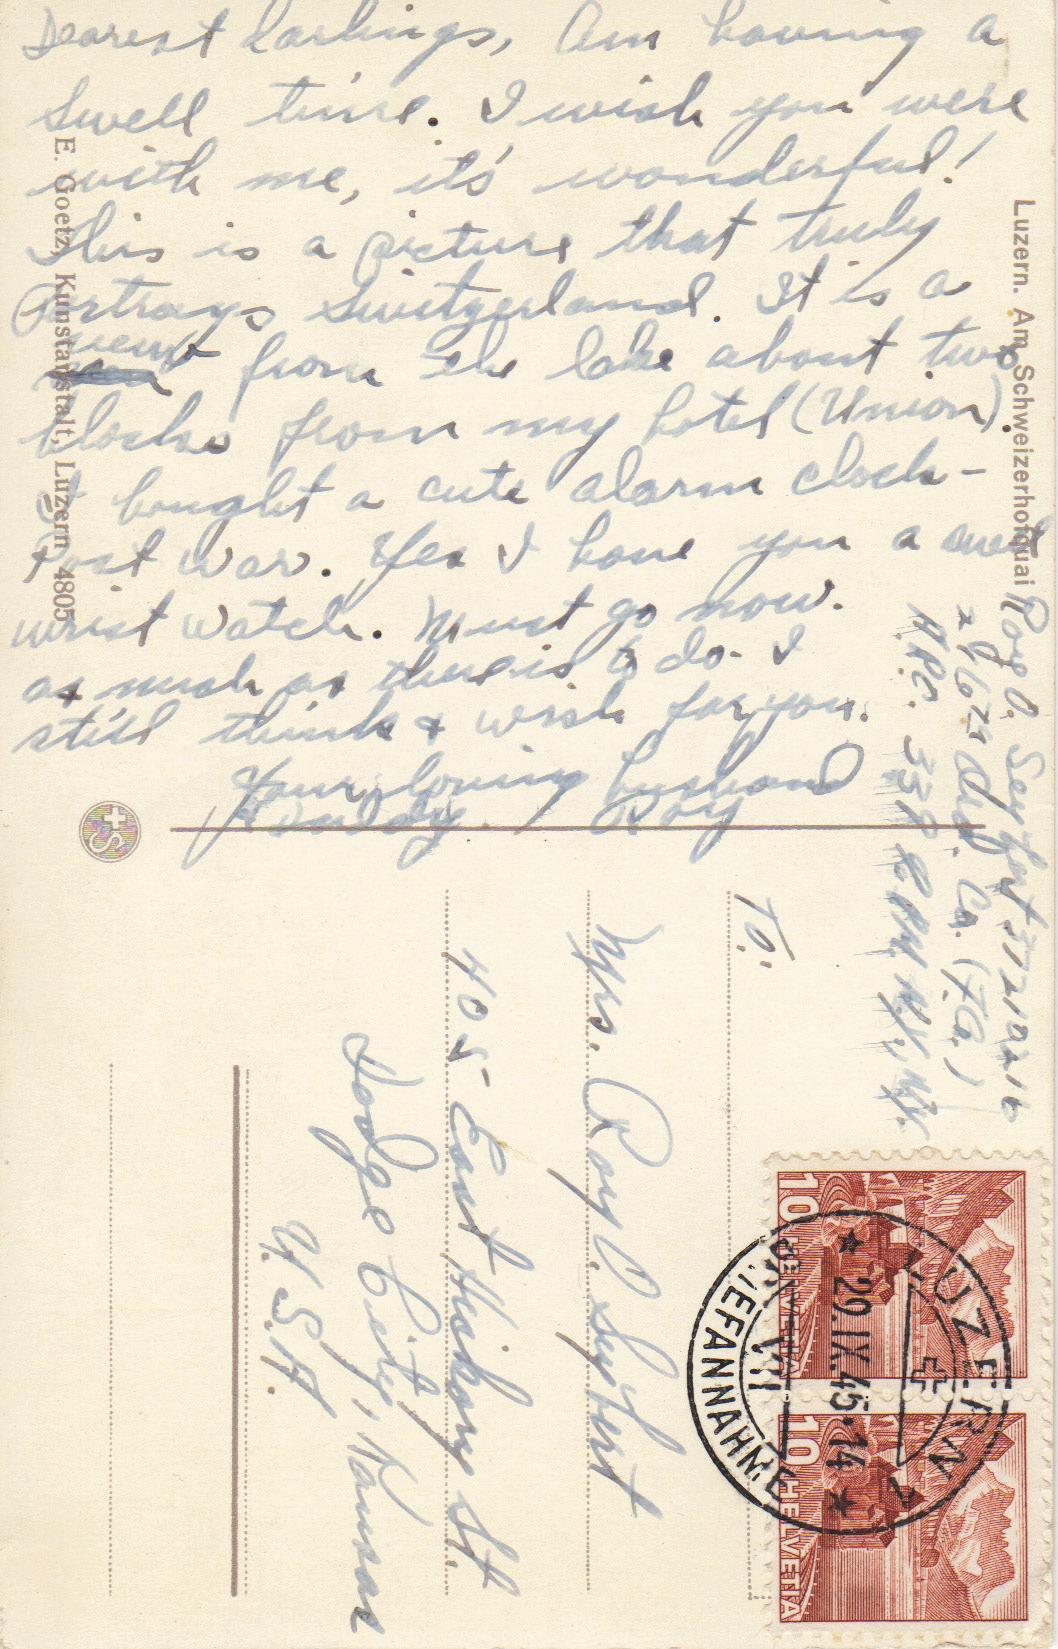 Dearest Darlings, Am having a
swell time. I wish you were
with me, it's wonderful!
This is a picture that truly
portrays Switzerland. It is a
view from the lake about two
blocks from my hotel (Union).
I bought a cute alarm clock-
Post war. Yes I have you a
wrist watch. Must go now.
as much as there is to do. I
still think & wish for you.
Your loving husband
& Daddy. Roy
E. Goetz, Kunstanstalt, Luzern 4805
Luzern. Am Schweizerhofquai
Roy O. Seyfert
Co.
A.P.O. N.Y., N.Y.
To:
Mrs. Roy O. Seyfert
405 East Hickory St.
Dodge City, Kansas
U.S.A.
LUZERN 2
29.IX.45.14
BRIEFANNAHME
10 HELVETIA
10 HELVETIA